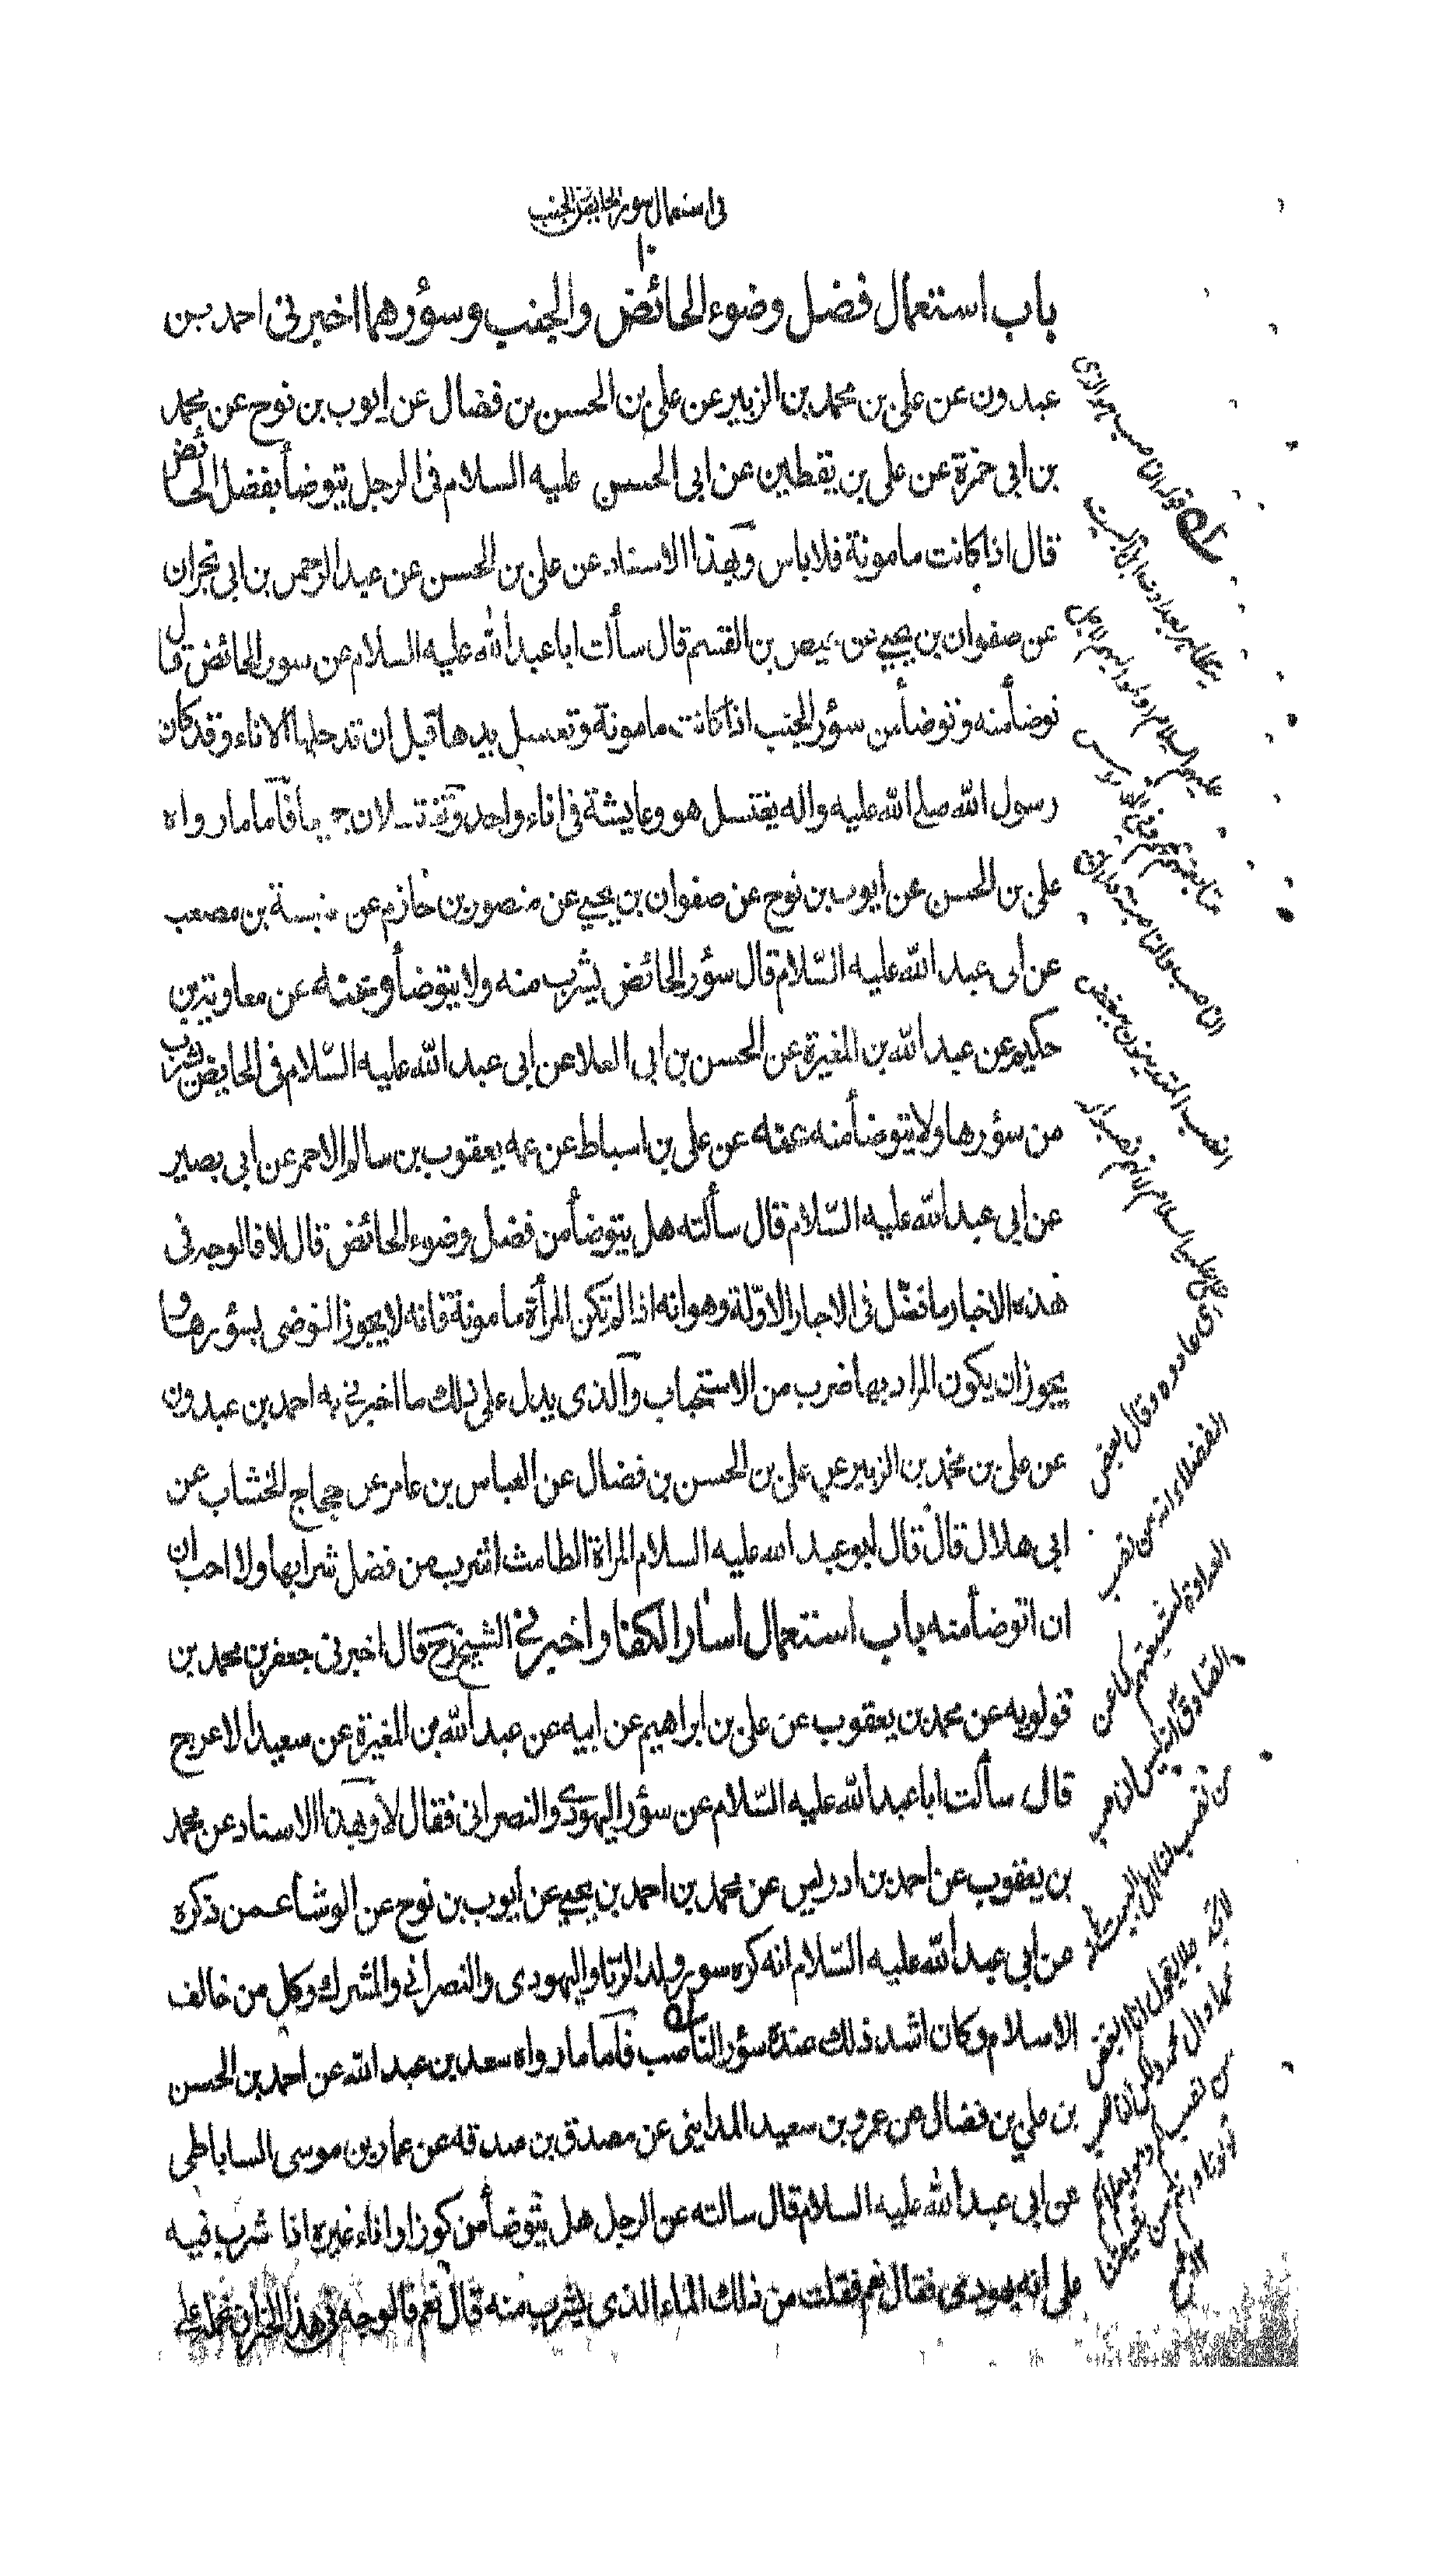 فی استعمال سور الحایض والجنب
۱۰
باب استعمال فضل وضوء الحائض والجنب وسؤرهما اخبرنی احمد بن
عبدون عن علی بن محمد بن الزبیر عن علی بن الحسن بن فضال عن ایوب بن نوح عن محمد
بن ابی حمزة عن علی بن یقطین عن ابی الحسن علیه السلام فی الرجل یتوضأ بفضل الحائض
قال اذا کانت مامونة فلا باس وبهذا الاسناد عن علی بن الحسن عن عبد الرحمن بن ابی نجران
عن صفوان بن یحیی عن عیص بن القسم قال سألت ابا عبد الله علیه السلام عن سور الحائض قال
توضأ منه وتوضأ من سؤر الجنب اذا کانت مامونة وتغسل یدها قبل ان تدخلها الاناء وقد کان
رسول الله صلی الله علیه واله یغتسل هو وعایشة فی اناء واحد ویغتسلان جمیعا فأما ما رواه
علی بن الحسن عن ایوب بن نوح عن صفوان بن یحیی عن منصور بن حازم عن عنبسة بن مصعب
عن ابی عبد الله علیه السّلام قال سؤر الحائض یشرب منه ولا یتوضأ وعنه عن معاویة بن
حکیم عن عبد الله بن المغیرة عن الحسن بن ابی العلا عن ابی عبد الله علیه السّلام فی الحایض یشرب
من سؤرها ولا یتوضأ منه عنه عن علی بن اسباط عن عمه یعقوب بن سالم الاحمر عن ابی بصیر
عن ابی عبد الله علیه السّلام قال سألته هل یتوضأ من فضل وضوء الحائض قال لا فالوجه فی
هذه الاخبار ما فصّل فی الاخبار الاوّلة وهو انه اذا لم تکن المرأة مامونة فانه لا یجوز التوضی بسؤرها و
یجوز ان یکون المراد بها ضرب من الاستحباب والذی یدل علی ذلک ما اخبرنی به احمد بن عبدون
عن علی بن محمد بن الزبیر عن علی بن الحسن بن فضال عن العباس بن عامر عن حجاج الخشاب عن
ابی هلال قال قال ابو عبد الله علیه السلام المراة الطامث اشرب من فضل شرابها ولا احب ان
ان اتوضأ منه باب استعمال اسار الکفار اخبرنی الشیخ رح قال اخبرنی جعفر بن محمد بن
قولویه عن محمد بن یعقوب عن علی بن ابراهیم عن ابیه عن عبد الله بن المغیرة عن سعید الاعرج
قال سألت ابا عبد الله علیه السّلام عن سؤر الیهودی والنصرانی فقال لا وبهذا الاسناد عن محمد
بن یعقوب عن احمد بن ادریس عن محمد بن احمد بن یحیی عن ایوب بن نوح عن الوشا عمن ذکره
عن ابی عبد الله علیه السّلام انه کره سور ولد الزنا والیهودی والنصرانی والمشرک وکل من خالف
الاسلام وکان اشد ذلک عنده سؤر الناصب فأما ما رواه سعد بن عبد الله عن احمد بن الحسن
بن علی بن فضال عن عمرو بن سعید المداینی عن مصدق بن صدقه عن عمار بن موسی الساباطی
عن ابی عبد الله علیه السلام قال سالته عن الرجل هل یتوضأ من کوز او اناء غیره اذا شرب فیه
علی انه یهودی فقال نعم فقلت من ذلک الماء الذی یشرب منه قال نعم فالوجه فی هذا الخبر ان نحمله علی
قوله الناصب هو الذی
یتظاهر بعداوة اهل البیت
الفضلاء انه من نصب
العداوة لشیعتهم
الصادق انه لیس الناصب
من نصب لنا اهل البیت